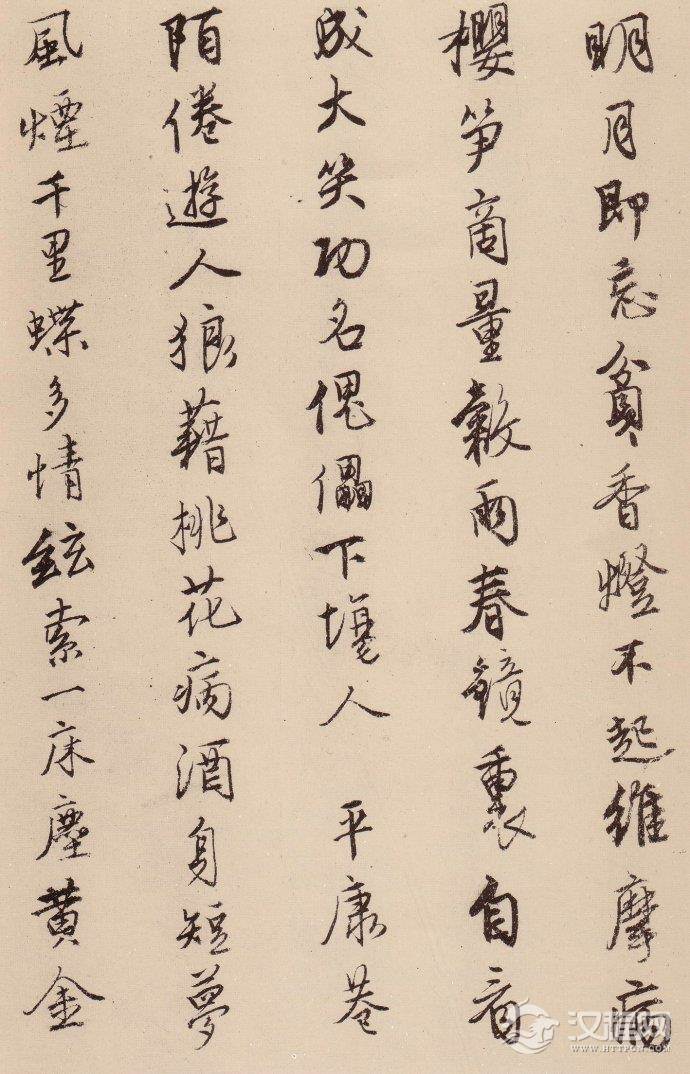 明月即忘貧香燈不起維摩病
櫻筍商量穀雨春鏡裏自看
成大笑功名傀儡下場人　平康巷
陌倦遊人狼藉桃花病酒身短夢
風煙千里蝶多情絃索一床塵黃金
汉程网
WWW.HTTPCN.COM